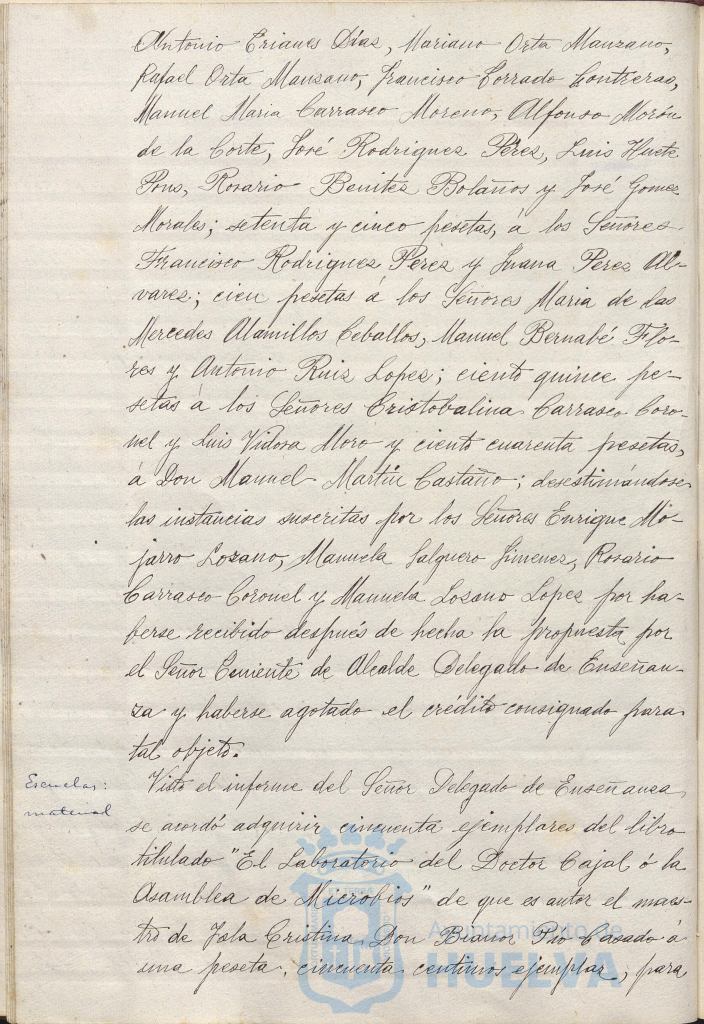 Antonio Erianes Días, Mariano Orta Manzano,
Rafael Orta Manzano, Francisco Torrado Contreras,
Manuel Maria Carrasco Moreno, Alfonso Morón
de la Corte, José Rodriguez Pérez, Luis Huete
Pons, Rosario Benitez Bolaños y José Gomez
Morales; setenta y cinco pesetas, á los Señores
Francisco Rodriguez Perez y Juana Perez Al-
varez; cien pesetas á los Señores Maria de las
Mercedes Alamillos Ceballos, Manuel Bernabé Flo-
res y Antonio Ruiz Lopez; ciento quince pe-
setas á los Señores Cristobalina Carrasco Coro-
nel y Luis Vidosa Moro y ciento cuarenta pesetas,
á Don Manuel Martín Castaño; desestimándose
las instancias suscritas por los Señores Enrique Mo-
jarro Lozano, Manuela Salguero Jimenez, Rosario
Carrasco Coronel y Manuela Lozano Lopez por ha-
berse recibido después de hecha la propuesta por
el Señor Teniente de Alcalde Delegado de Enseñan-
za y haberse agotado el crédito consignado para
tal objeto.
Escuelas:
material
Visto el informe del Señor Delegado de Enseñanza,
se acordó adquirir cincuenta ejemplares del libro
titulado "El Laboratorio del Doctor Cajal ó la
Asamblea de Microbios" de que es autor el maes-
tro de Isla Cristina, Don Bianor Pío Casado á
una peseta, cincuenta centimos ejemplar, para
Ayuntamiento de
HUELVA